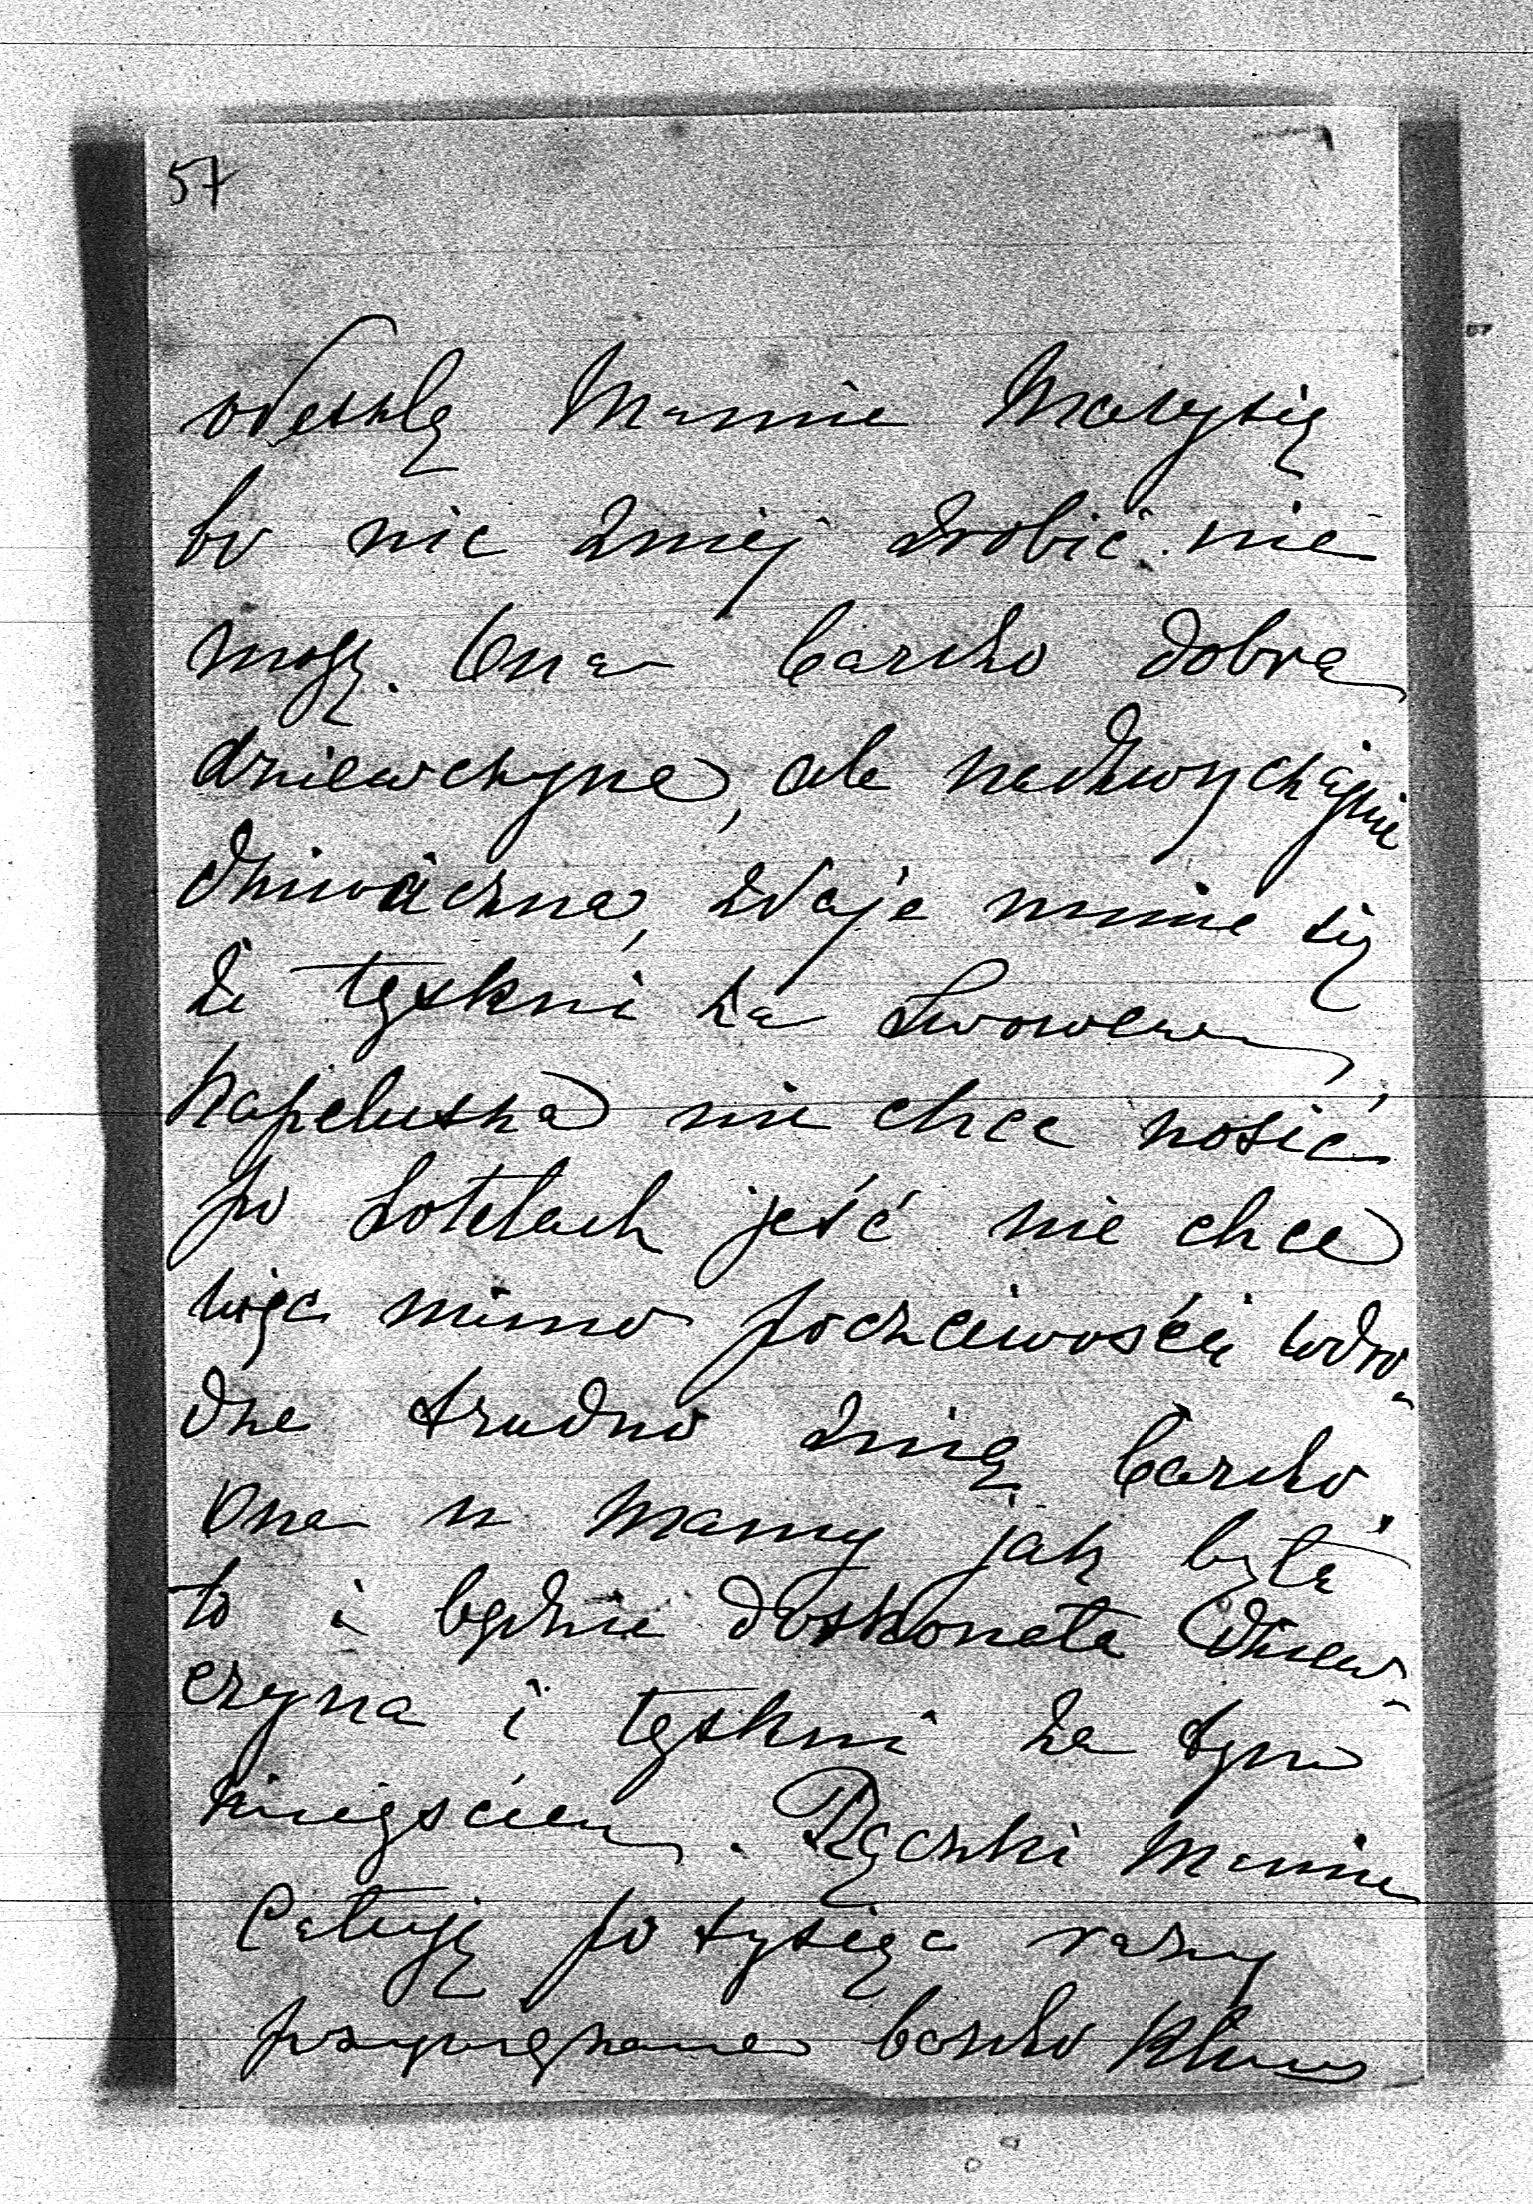 57
odeszlę Mamie Marysię
bo nic zniej zrobić nie
mogę. Ona bardzo dobra
dziewczyna, ale nadzwyczajnie
dziwaczna, zdaje mnie się
że tęskni za Lwowem,
kapelusza nie chce nosić
po hotelach jeść nie chce
więc mimo poczciwości wdro-
dze trudno znią bardzo,
Ona u mamy jak była
to i będzie doskonała dziew-
czyna i tęskni za tym
miejscem. Rączki Mamie
Całuję po tysiąc razy
przywiązana bardzo